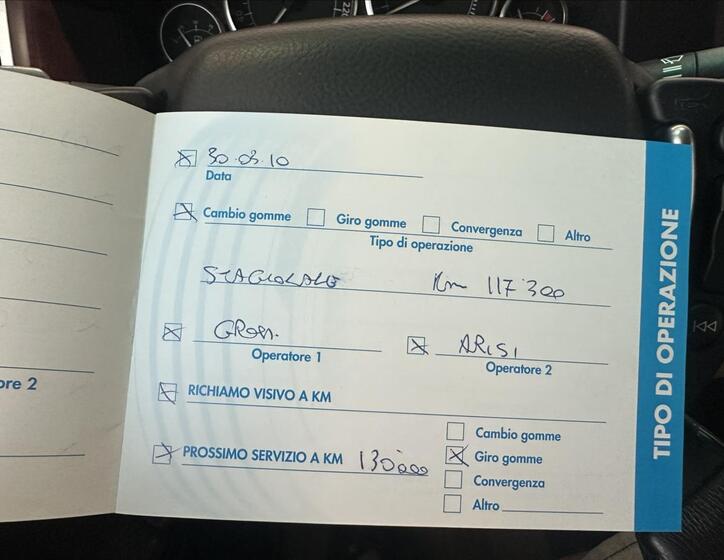 30.03.10
Data
Cambio gomme Giro gomme Convergenza Altro
Tipo di operazione
STAGIONALE Km 117300
Operatore 1
ARISI
Operatore 2
RICHIAMO VISIVO A KM
PROSSIMO SERVIZIO A KM 130000
Cambio gomme
Giro gomme
Convergenza
Altro
TIPO DI OPERAZIONE
ore 2
220